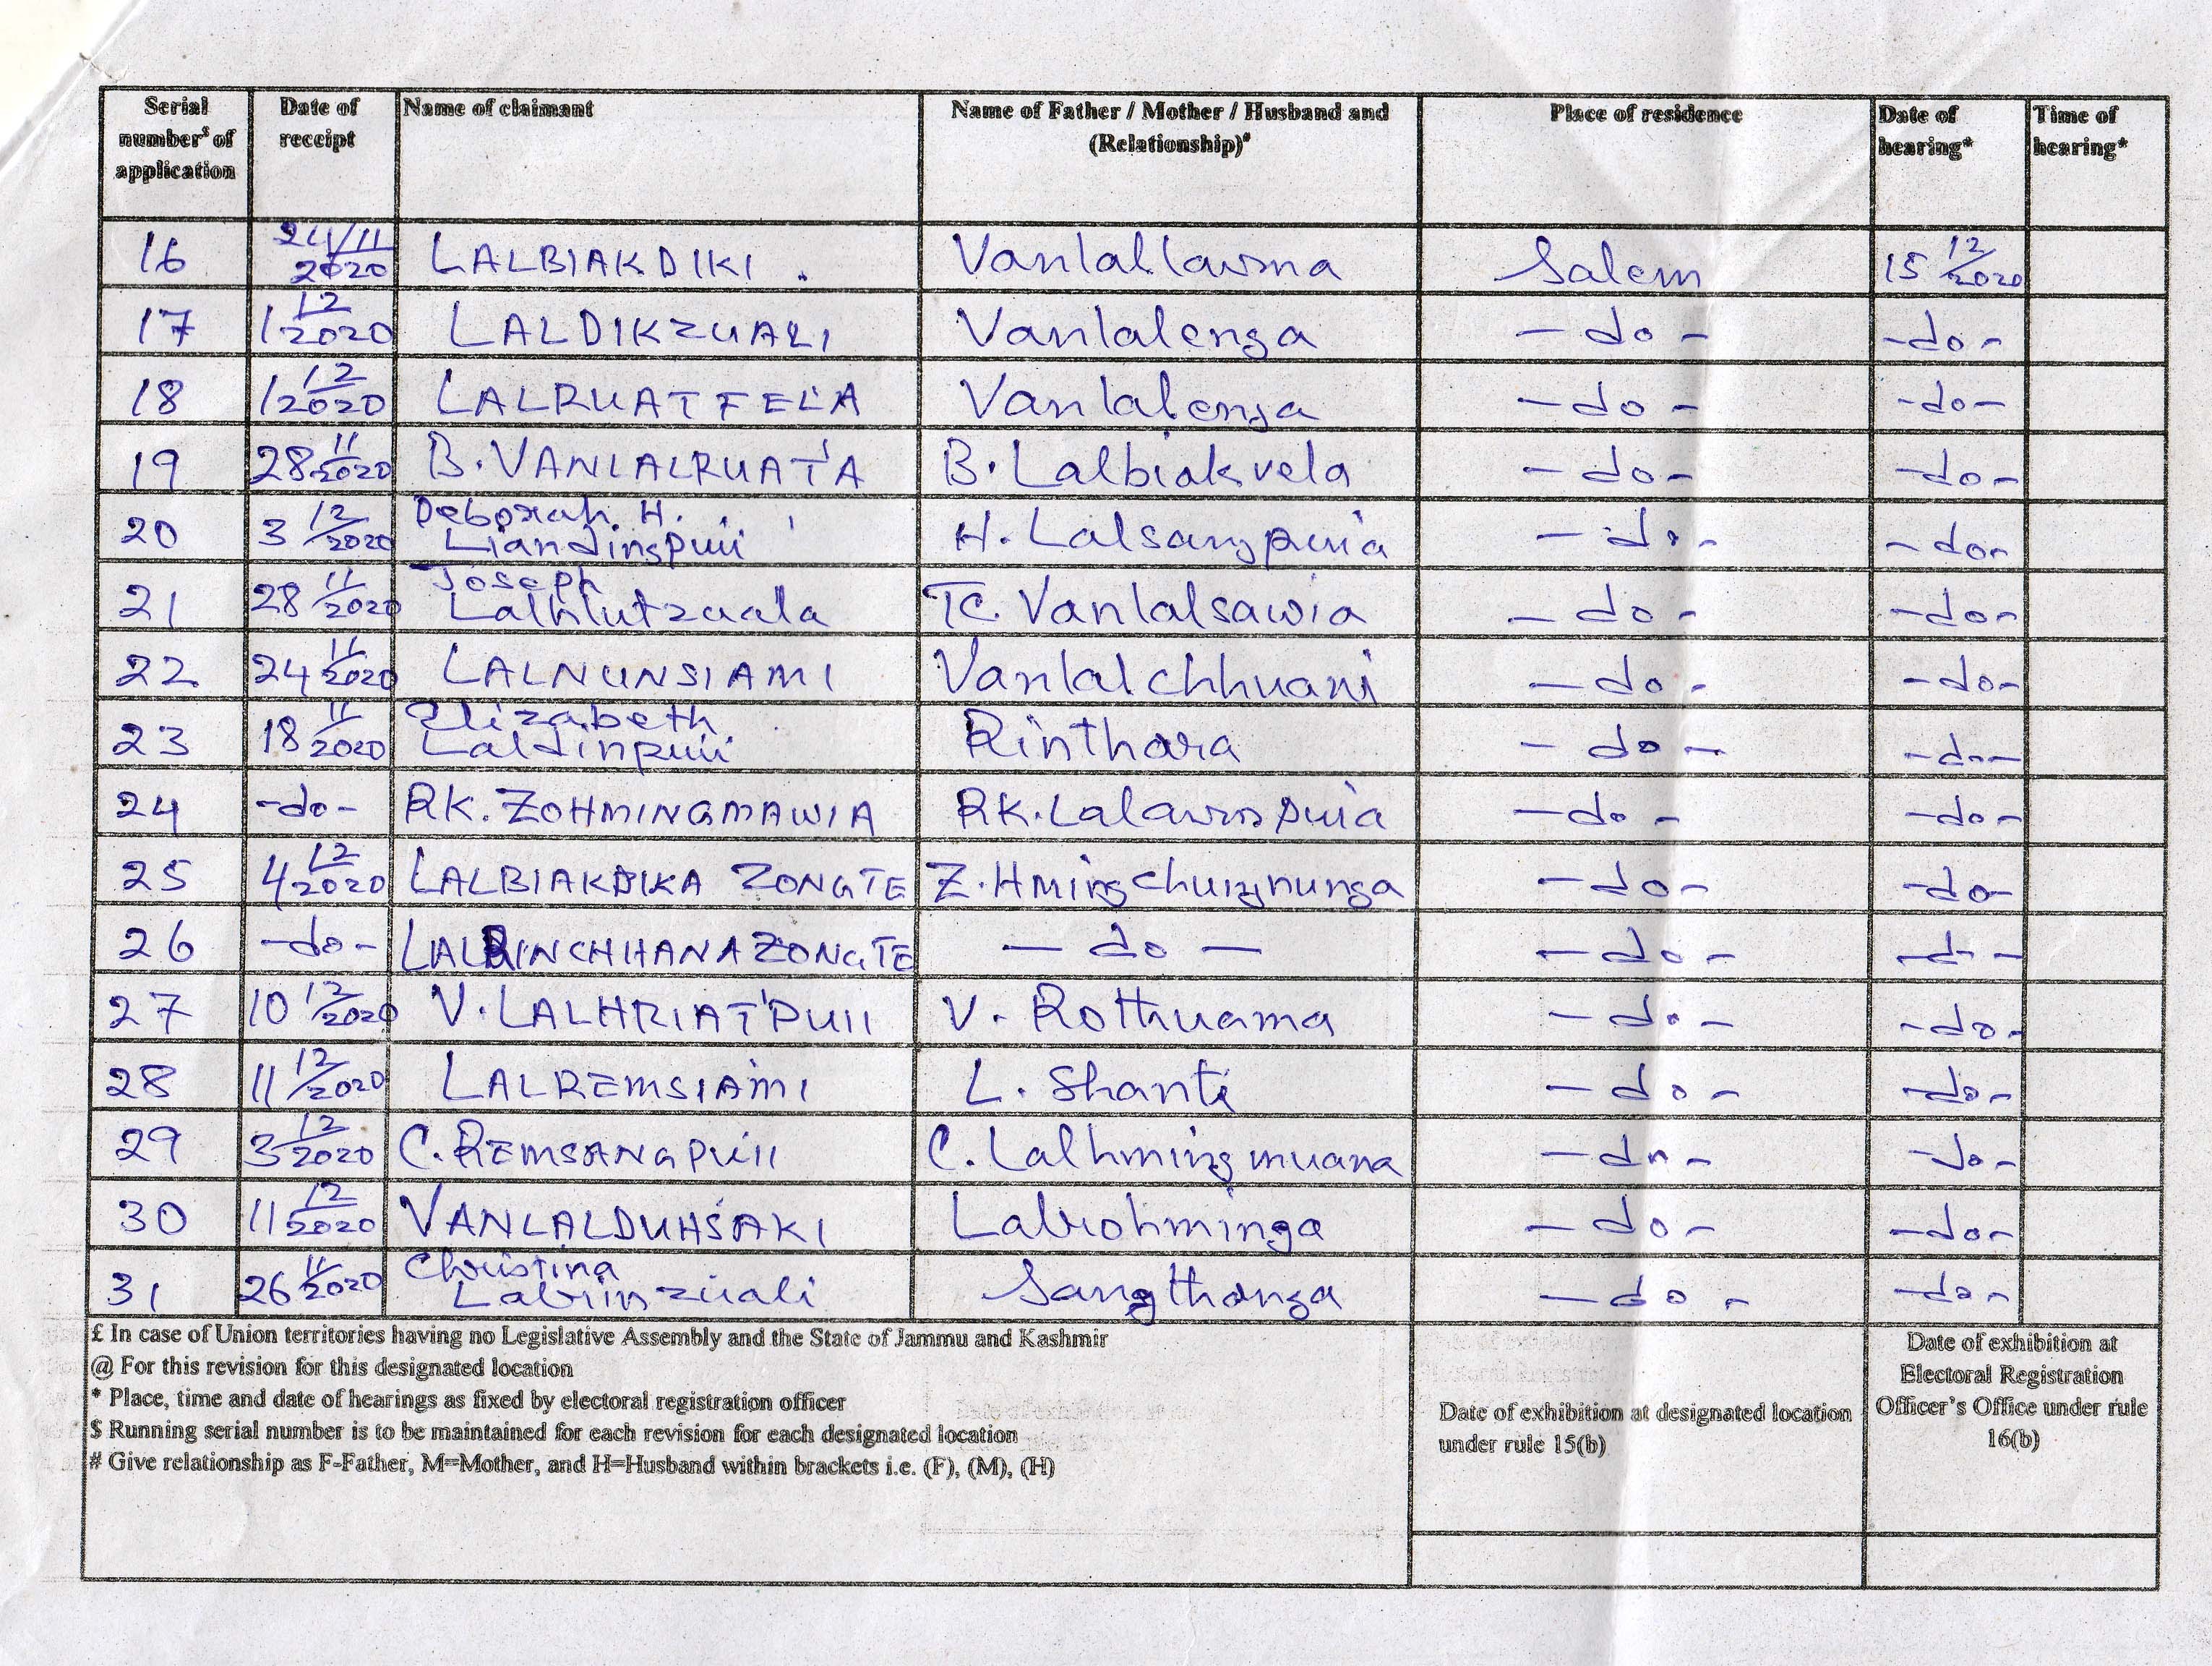 Serial number$ of application | Date of receipt | Name of claimant | Name of Father / Mother / Husband and (Relationship)# | Place of residence | Date of hearing* | Time of hearing*
16 | 24/11/2020 | LALBIAKDIKI . | Vanlallawma | Salem | 15 12/2020
17 | 1 12/2020 | LALDIKZUALI | Vanlalenga | -do- | -do-
18 | 1 12/2020 | LALRUATFELA | Vanlalenga | -do- | -do-
19 | 28 11/2020 | B. VANLALRUATA | B. Lalbiakvela | -do- | -do-
20 | 3 12/2020 | Deborah H. Liandingpuii | H. Lalsangpuia | -do- | -do-
21 | 28 11/2020 | Joseph Lalhlutzuala | TC. Vanlalsawia | -do- | -do-
22 | 24 11/2020 | LALNUNSIAMI | Vanlalchhuani | -do- | -do-
23 | 18 11/2020 | Elizabeth Laldinpuii | Rinthara | -do- | -do-
24 | -do- | RK. ZOHMINGMAWIA | RK. Lalawmpuia | -do- | -do-
25 | 4 12/2020 | LALBIAKDIKA ZONGTE | Z. Hmingchungnunga | -do- | -do-
26 | -do- | LALRINCHHANA ZONGTE | -do- | -do- | -do-
27 | 10 12/2020 | V. LALHRIATPUII | V. Rothuama | -do- | -do-
28 | 11 12/2020 | LALREMSIAMI | L. Shanti | -do- | -do-
29 | 3 12/2020 | C. REMSANGPUII | C. Lalhmingmuana | -do- | -do-
30 | 11 12/2020 | VANLALDUHSAKI | Lalrohminga | -do- | -do-
31 | 26 11/2020 | Christina Lalrinzuali | Sangthanga | -do- | -do-
£ In case of Union territories having no Legislative Assembly and the State of Jammu and Kashmir
@ For this revision for this designated location
* Place, time and date of hearings as fixed by electoral registration officer
$ Running serial number is to be maintained for each revision for each designated location
# Give relationship as F-Father, M=Mother, and H=Husband within brackets i.e. (F), (M), (H)
Date of exhibition at designated location
under rule 15(b)
Date of exhibition at
Electoral Registration
Officer's Office under rule
16(b)